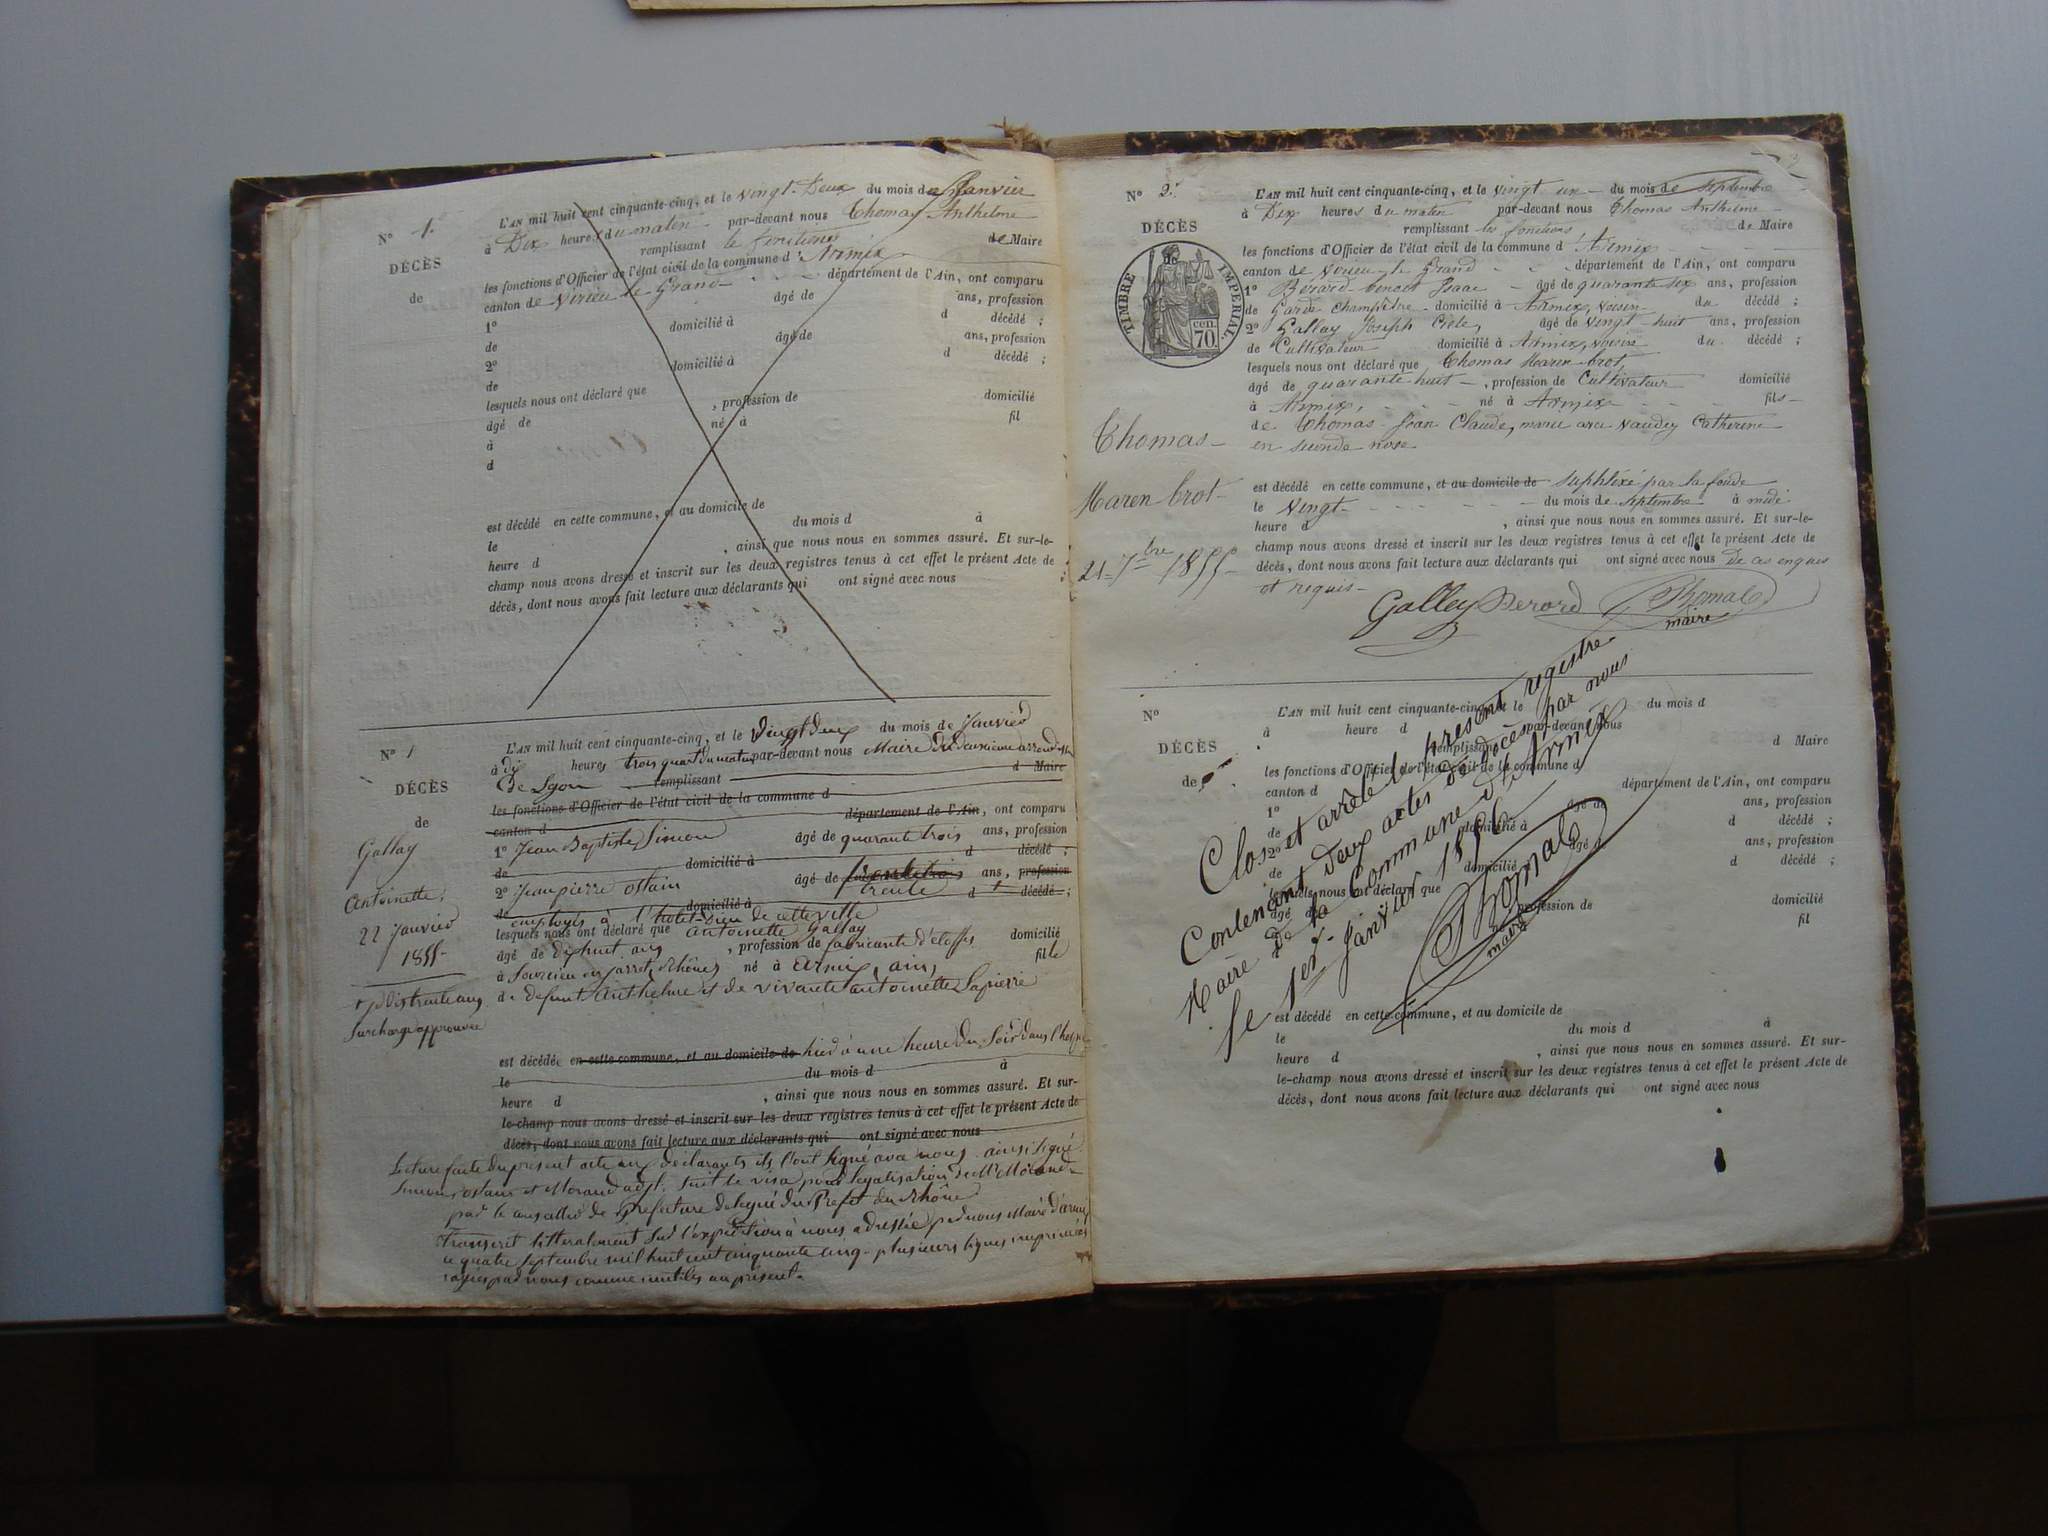 N° 1.
DÉCÈS
de
L'AN mil huit cent cinquante-cinq, et le vingt-Deux du mois de Janvier
à Dix heures du matin par-devant nous Thomas Anthelme
remplissant les fonctions de Maire
les fonctions d'Officier de l'état civil de la commune d'Armix
canton de Virieu le Grand département de l'Ain, ont comparu
1° âgé de ans, profession
de domicilié à d décédé ;
2° âgé de ans, profession
de domicilié à d décédé ;
lesquels nous ont déclaré que
âgé de , profession de domicilié
à né à fil
d
est décédé en cette commune, et au domicile de
le du mois d à
heure d , ainsi que nous nous en sommes assuré. Et sur-le-
champ nous avons dressé et inscrit sur les deux registres tenus à cet effet le présent Acte de
décès, dont nous avons fait lecture aux déclarants qui ont signé avec nous
N° 1
DÉCÈS
de
Gallay
Antoinette,
22 Janvier
1855
L'AN mil huit cent cinquante-cinq, et le Vingt deux du mois de Janvier
à dix heures trois quart du matin par-devant nous Maire du deuxième
de Lyon remplissant d Maire
les fonctions d'Officier de l'état civil de la commune d
canton d département de l'Ain, ont comparu
1° Jean Baptiste Simon âgé de quarante trois ans, profession
de domicilié à d décédé ;
2° Jean pierre ostain âgé de trente ans, profession
de domicilié à d décédé ;
employés à l'hotel-Dieu de cette ville
lesquels nous ont déclaré que Antoinette Gallay
âgé de dix huit ans , profession de fabricante d'étoffes domicilié
à né à Armix, ain, fille
de defunt Anthelme et de vivante antoinette Lapierre
Surcharge approuvée
est décédée en cette commune, et au domicile de hier à une heure du Soir dans l'hospice
le du mois d à
heure d , ainsi que nous nous en sommes assuré. Et sur-
le-champ nous avons dressé et inscrit sur les deux registres tenus à cet effet le présent Acte de
décès, dont nous avons fait lecture aux déclarants qui ont signé avec nous
Lecture faite du présent acte aux déclarants ils l'ont signé avec nous ainsi signé
Simon, ostain et Morand adjt. suit le visa pour legalisation de Mr Morand
par le conseiller de Prefecture delegué du Prefet du Rhône
transcrit litteralement sur l'expédition à nous adressée par nous Maire d'armix
ce quatre septembre mil huit cent cinquante cinq - plusieurs lignes imprimées
rayées par nous comme inutiles au présent.
N° 2.
DÉCÈS
TIMBRE IMPERIAL.
70 cen.
Thomas
Maren brot
21 7bre 1855
L'AN mil huit cent cinquante-cinq, et le vingt un du mois de Septembre
à Dix heures du matin par-devant nous Thomas Anthelme
remplissant les fonctions de Maire
les fonctions d'Officier de l'état civil de la commune d'Armix
canton de Virieu le Grand département de l'Ain, ont comparu
1° Bérard benoit Isaac âgé de quarante six ans, profession
de Garde Champêtre domicilié à Armix, voisin du décédé ;
2° Gallay Joseph âgé de vingt-huit ans, profession
de Cultivateur domicilié à Armix, voisin du décédé ;
lesquels nous ont déclaré que Thomas Maren brot,
âgé de quarante huit , profession de Cultivateur domicilié
à Armix, né à Armix fils
de Thomas Jean Claude, marié avec Vaudey Catherine
en seconde nose
est décédé en cette commune, et au domicile de par la foude
le vingt du mois de Septembre à midi
heure d , ainsi que nous nous en sommes assuré. Et sur-le-
champ nous avons dressé et inscrit sur les deux registres tenus à cet effet le présent Acte de
décès, dont nous avons fait lecture aux déclarants qui ont signé avec nous De ces enques
et requis
Galley Berard Thomas
maire
N°
DÉCÈS
de
L'AN mil huit cent cinquante-cinq, et le du mois d
à heure d par-devant nous
remplissant d Maire
les fonctions d'Officier de l'état civil de la commune d
canton d département de l'Ain, ont comparu
1° âgé de ans, profession
de domicilié à d décédé ;
2° âgé de ans, profession
de domicilié à d décédé ;
lesquels nous ont déclaré que
âgé de , profession de domicilié
fil
Clos et arrêté le present registre
Contenant deux actes de décès par nous
Maire de la Commune d'Armix
le 1er Janvier 1856
Thomas
maire
est décédé en cette commune, et au domicile de
le du mois d à
heure d , ainsi que nous nous en sommes assuré. Et sur-
le-champ nous avons dressé et inscrit sur les deux registres tenus à cet effet le présent Acte de
décès, dont nous avons fait lecture aux déclarants qui ont signé avec nous